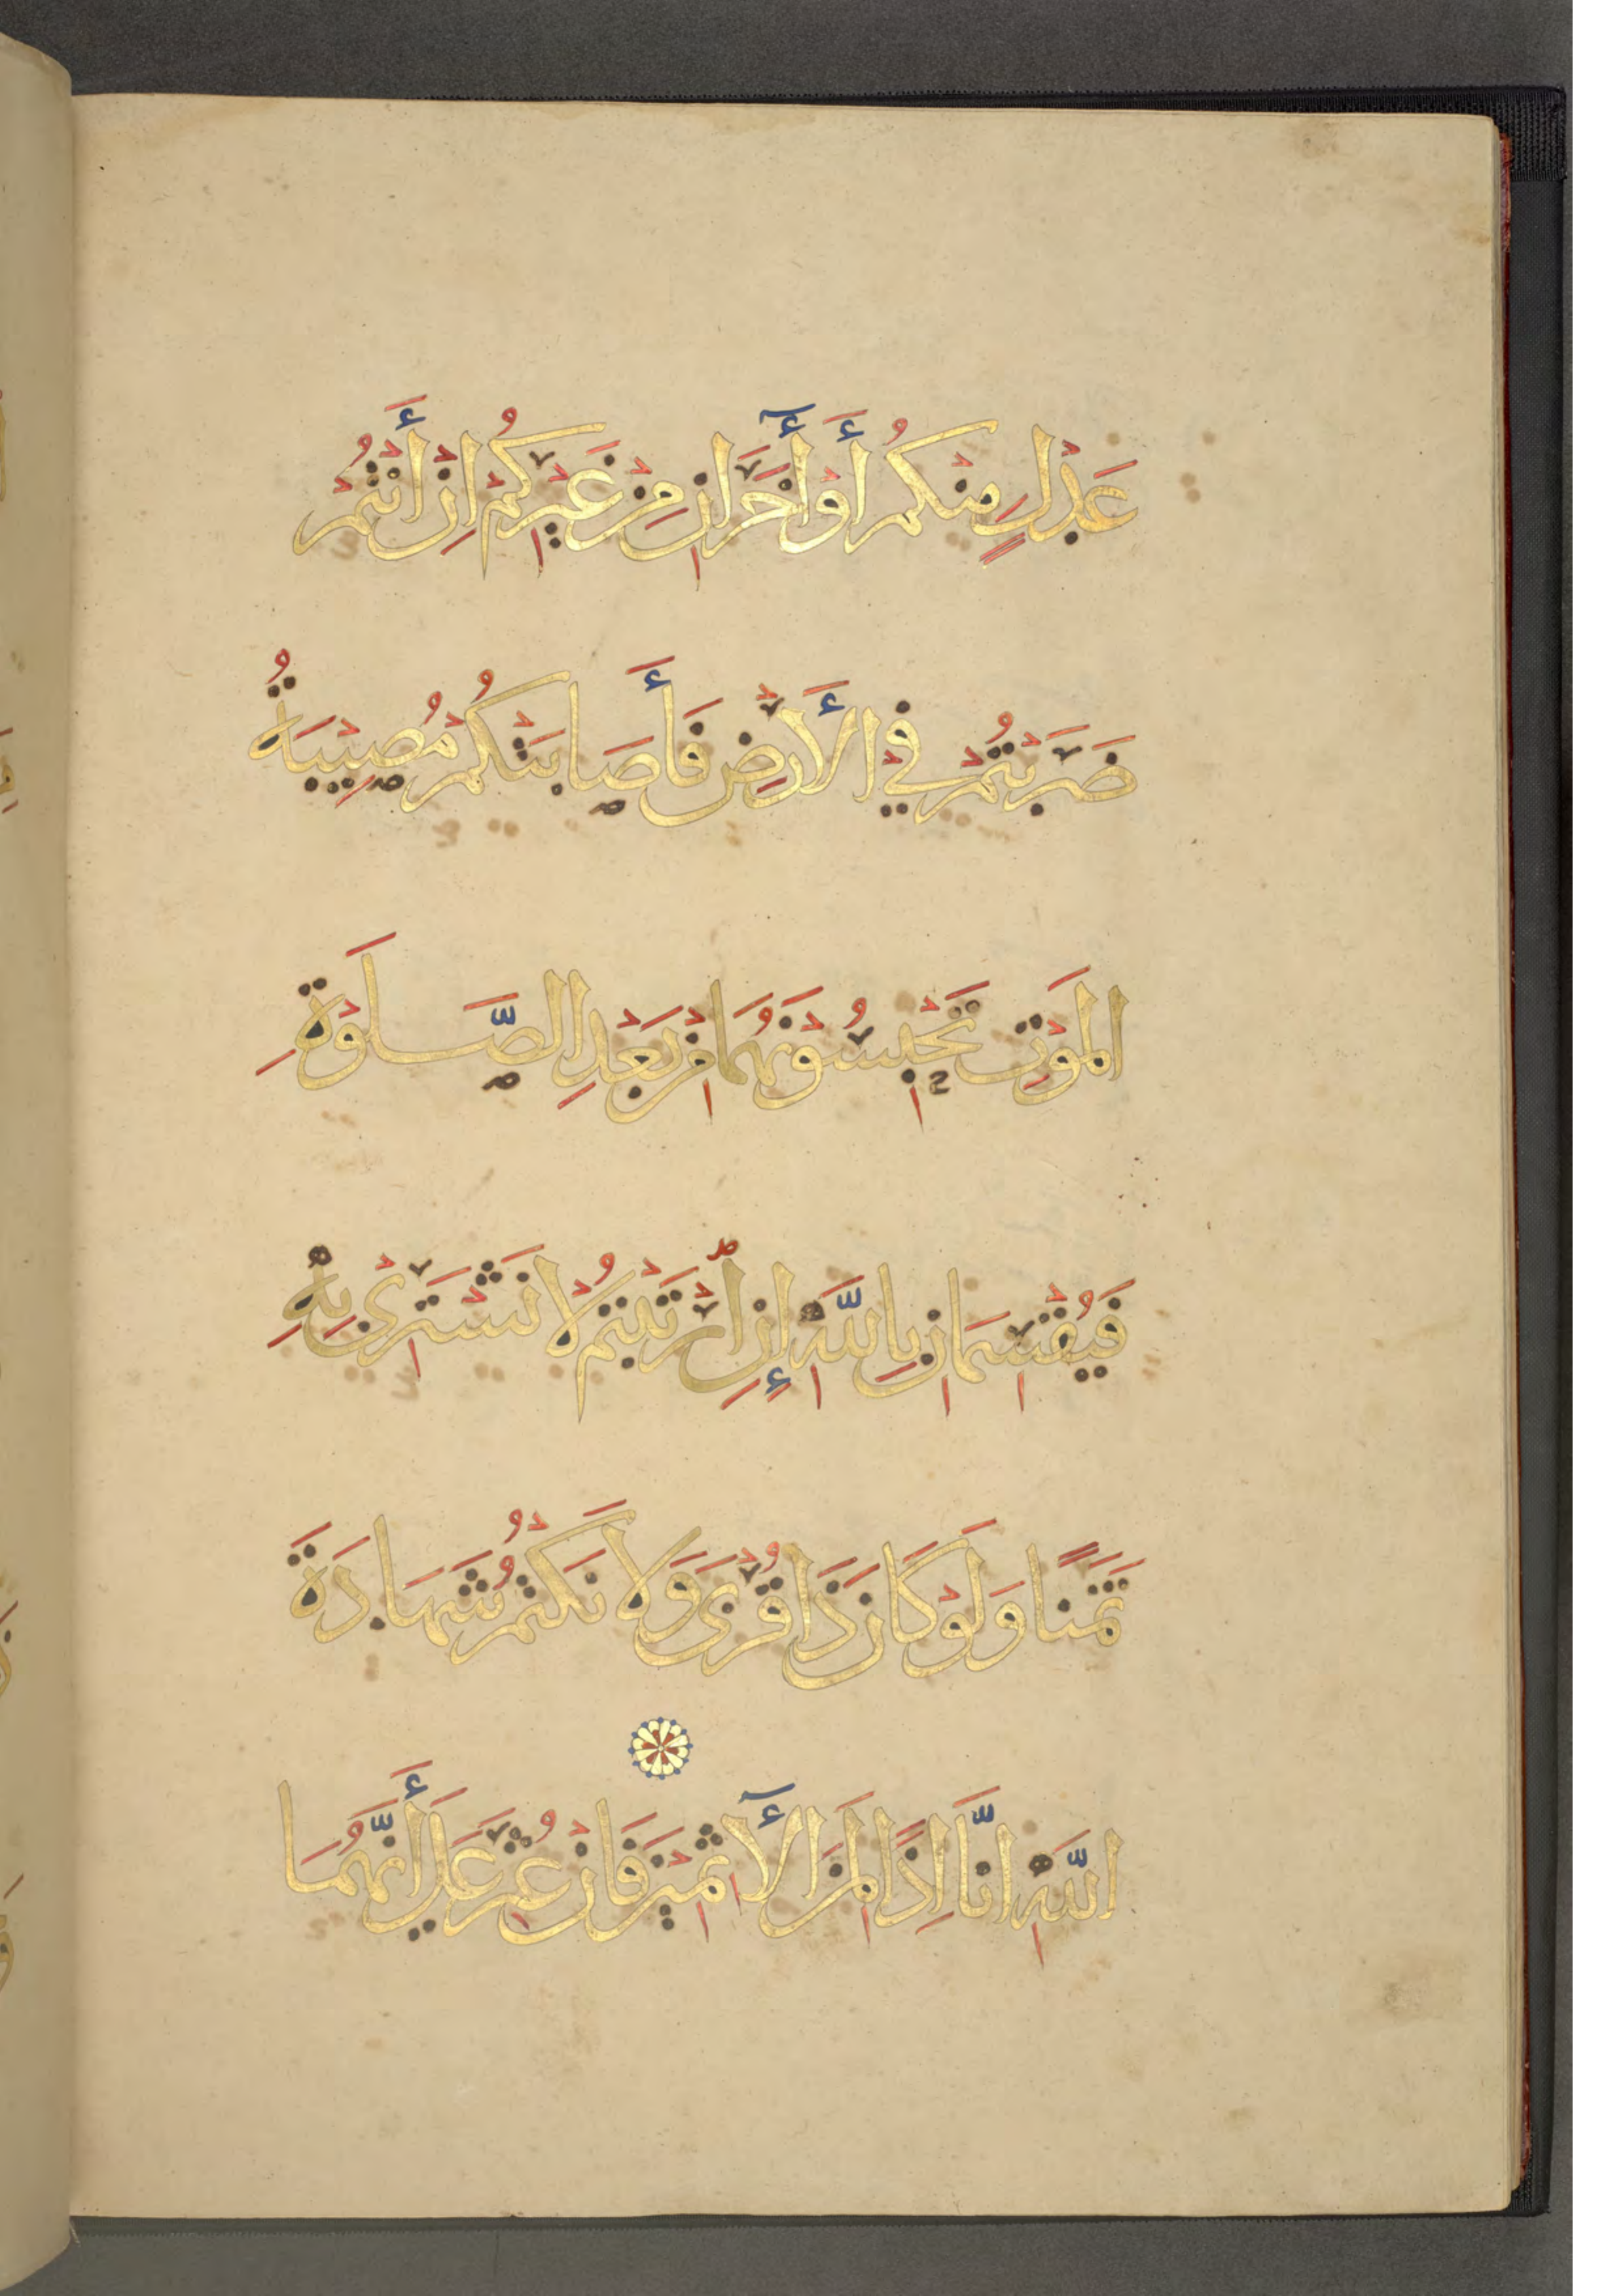 عَدْلٍ مِنْكُمْ أَوْ أٓخَرَانِ مِنْ غَيْرِكُمْ اِنْ أَنْتُمْ
ضَرَبْتُمْ فِي الْأَرْضِ فَأَصَابَتْكُمْ مُصِيْبَةُ
الْمَوْتِ تَحْبِسُوْنَهُمَا مِنْ بَعْدِ الصَّلَوٰةِ
فَيُقْسِمَانِ بِاللّٰهِ إِنِ ٱرْتَبْتُمْ لَا نَشْتَرِيْ بِهِ
ثَمَنًا وَلَوْ كَانَ ذَا قُرْبَى وَلَا نَكْتُمُ شَهَادَةَ
اللّٰهِ اِنَّا اِذًا لَمِنَ الْأٓثِمِيْنَ فَاِنْ عُثِرَ عَلَى أَنَّهُمَا